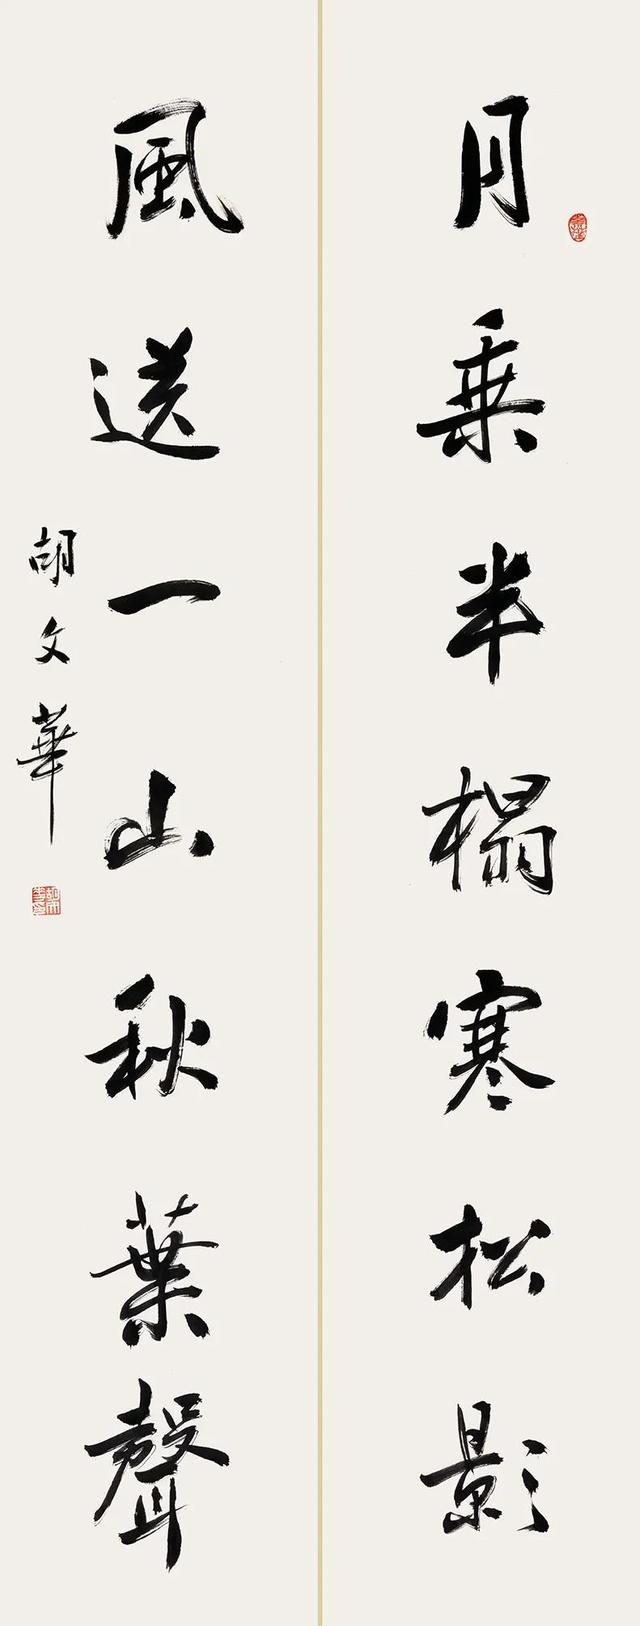 月乘半榻寒松影
風送一山秋葉聲
胡文華